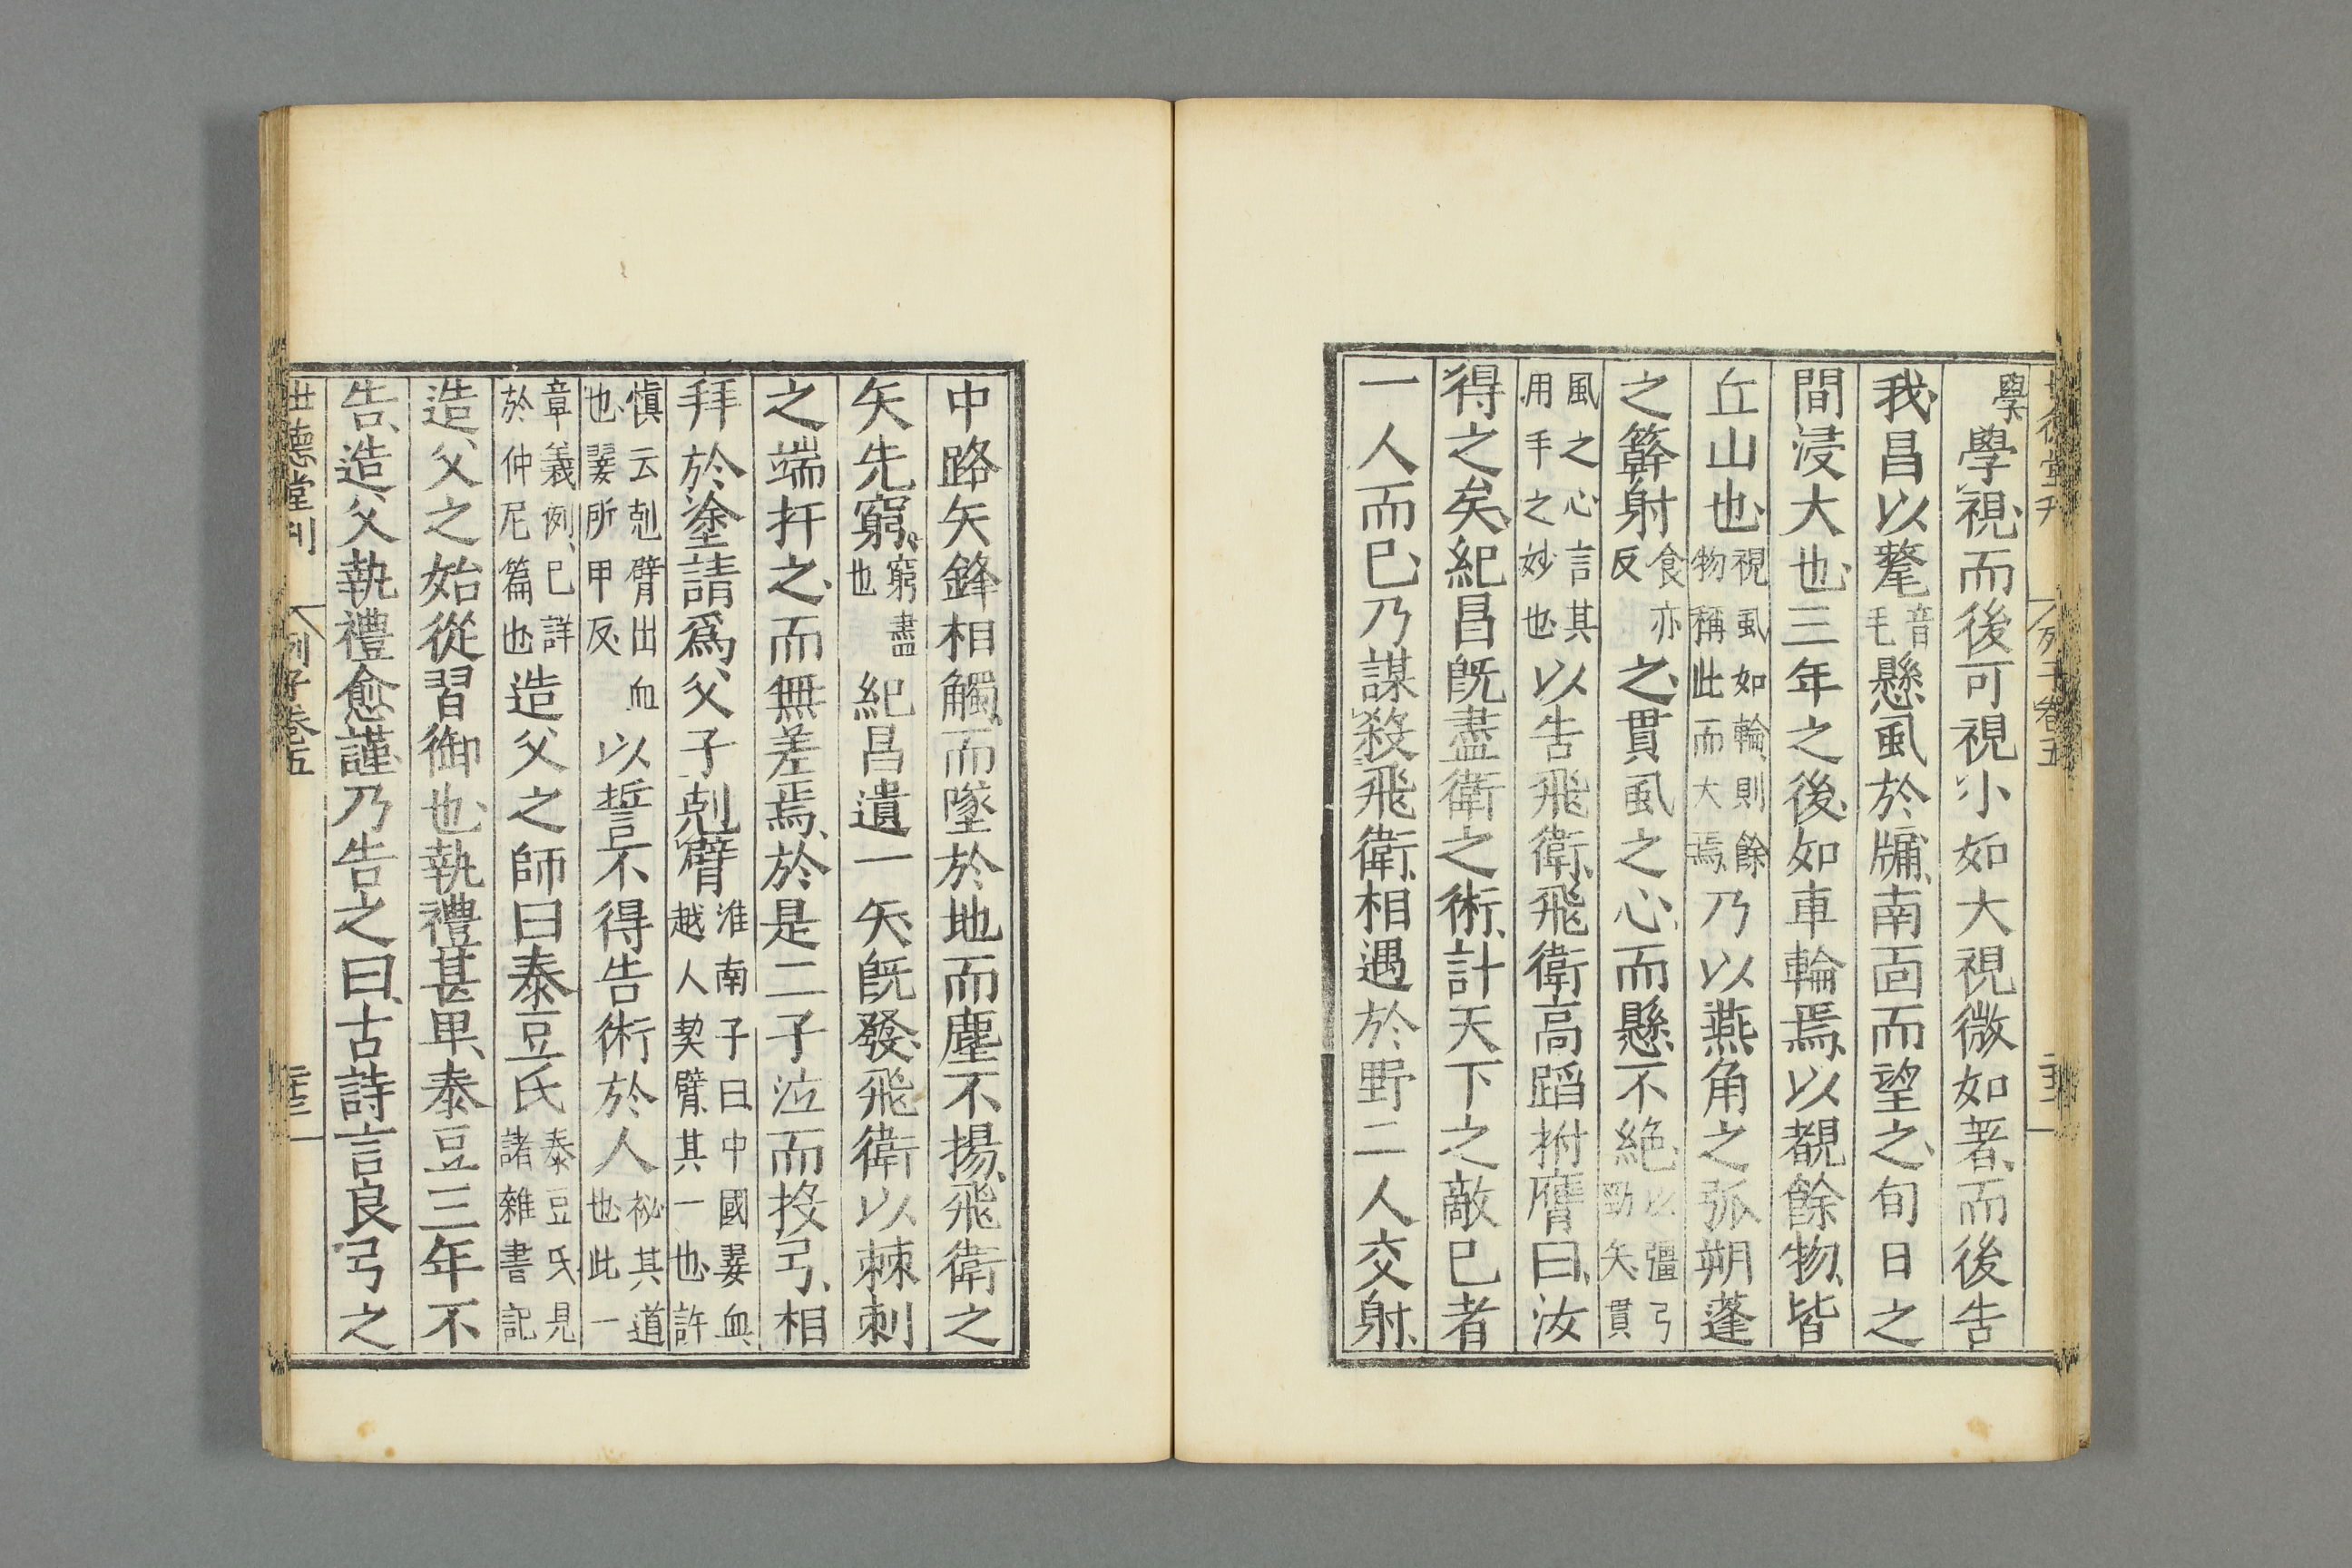 世德堂刊 列子卷五
學學視、而後可視小如大視微如著、而後告
我、昌以氂音毛懸虱於牖、南面而望之、旬日之
間浸大也、三年之後、如車輪焉、以覩餘物、皆
丘山也、視虱如輪、則餘物稱此而大焉、乃以燕角之弧朔蓬
之簳射食亦反之、貫虱之心、而懸不絶、以彊弓勁矢、貫
風之心言其用手之妙也、以告飛衛、飛衛高蹈拊膺曰、汝
得之矣、紀昌既盡衛之術、計天下之敵已者
一人而已、乃謀殺飛衛、相遇於野二人交射、
中路矢鋒相觸、而墜於地而塵不揚、飛衛之
矢先窮、窮盡也紀昌遺一矢、既發、飛衛以棘刺
之端扞之、而無差焉、於是二子泣而投弓、相
拜於塗請爲父子剋臂淮南子曰、中國歃血越人契臂、其一也、許
愼云剋臂出血也、歃所甲反、以誓不得告術於人祕其道也、此一
章義例、已詳於仲尼篇也造父之師曰泰豆氏泰豆氏見諸雜書記
造父之始從習御也、執禮甚卑、泰豆三年不
告、造父執禮愈謹、乃告之曰、古詩言良弓之
世德堂刊 列子卷五